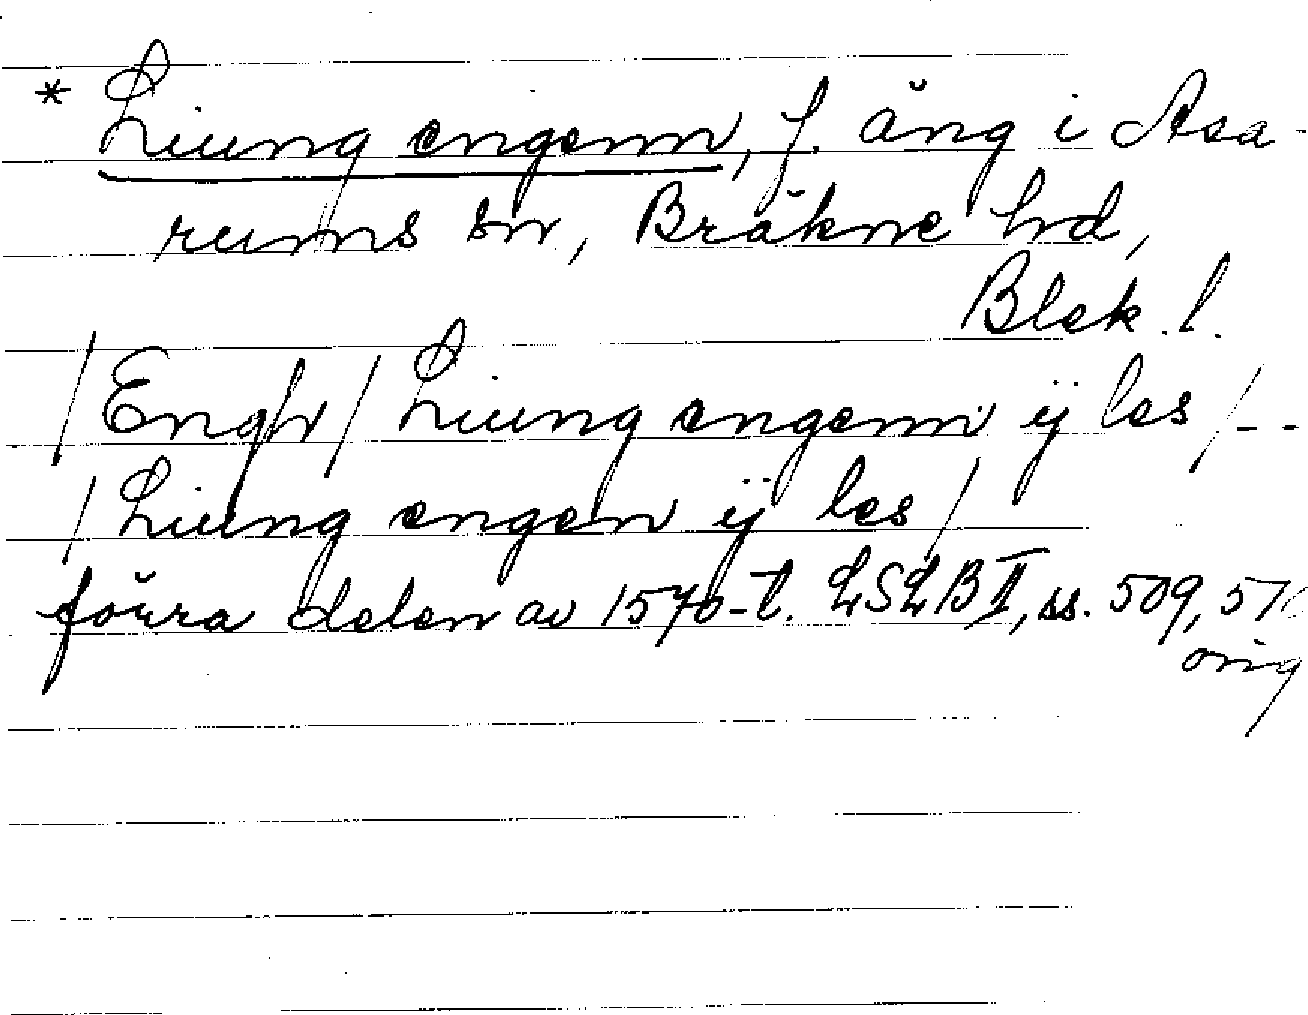 * Liung engenn, f. äng i Asa-
rums sn, Bräkne hd,
Blek. l.
/Engh/ Liung engenn ij les /--
/Liung engen ij les/
förra delen av 1570-t. LSLB II, ss. 509, 51
orig